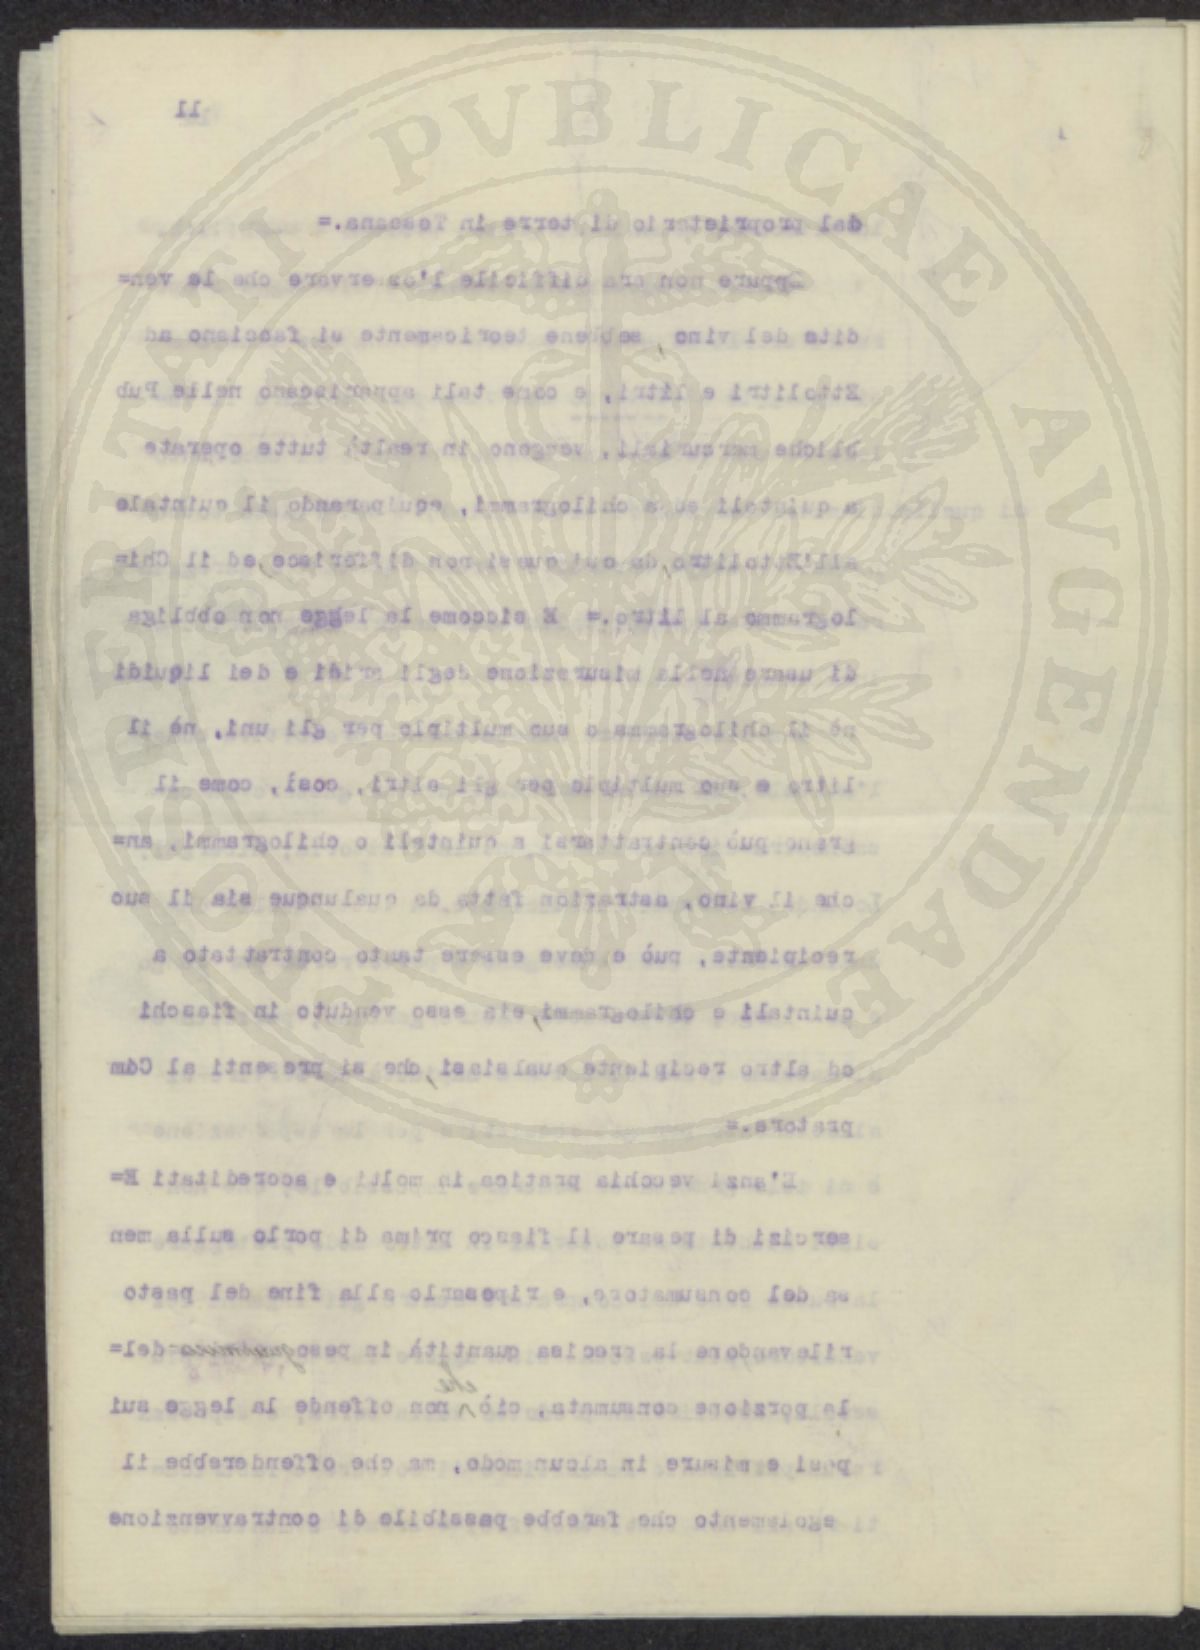 11
dal proprietario di terre in Toscana.=
Eppure non era difficile l'osservare che le ven=
dite del vino, sebbene teoricamente si facciano ad
Ettolitri e litri, e come tali appariscano nelle Pub
bliche mercuriali, vengono in realtà tutte operate
a quintali ed a chilogrammi, equiparando il quintale
all'Ettolitro, da cui quasi non differisce, ed il Chi=
logrammo al litro.= E siccome la legge non obbliga
di usare nella misurazione degli aridi e dei liquidi
nè il chilogramma o suo multiplo per gli uni, nè il
litro e suo multiplo per gli altri, così, come il
grano può contrattarsi a quintali o chilogrammi, an=
che il vino, astrazion fatta da qualunque sia il suo
recipiente, può e deve essere tanto contrattato a
quintali e chilogrammi, sia esso venduto in fiaschi
od altro recipiente qualsiasi, che si presenti al Com
pratore.=
E'anzi vecchia pratica in molti e accreditati E=
sercizi di pesare il fiasco prima di porlo sulla men
sa del consumatore, e ripesarlo alla fine del pasto
rilevandone la precisa quantità in peso del=
la porzione consumata, ciò che non offende la legge sui
pesi e misure in alcun modo, ma che offenderebbe il
egolamento che farebbe passibile di contravvenzione
PROSPERITATI PVBLICAE AVGENDAE